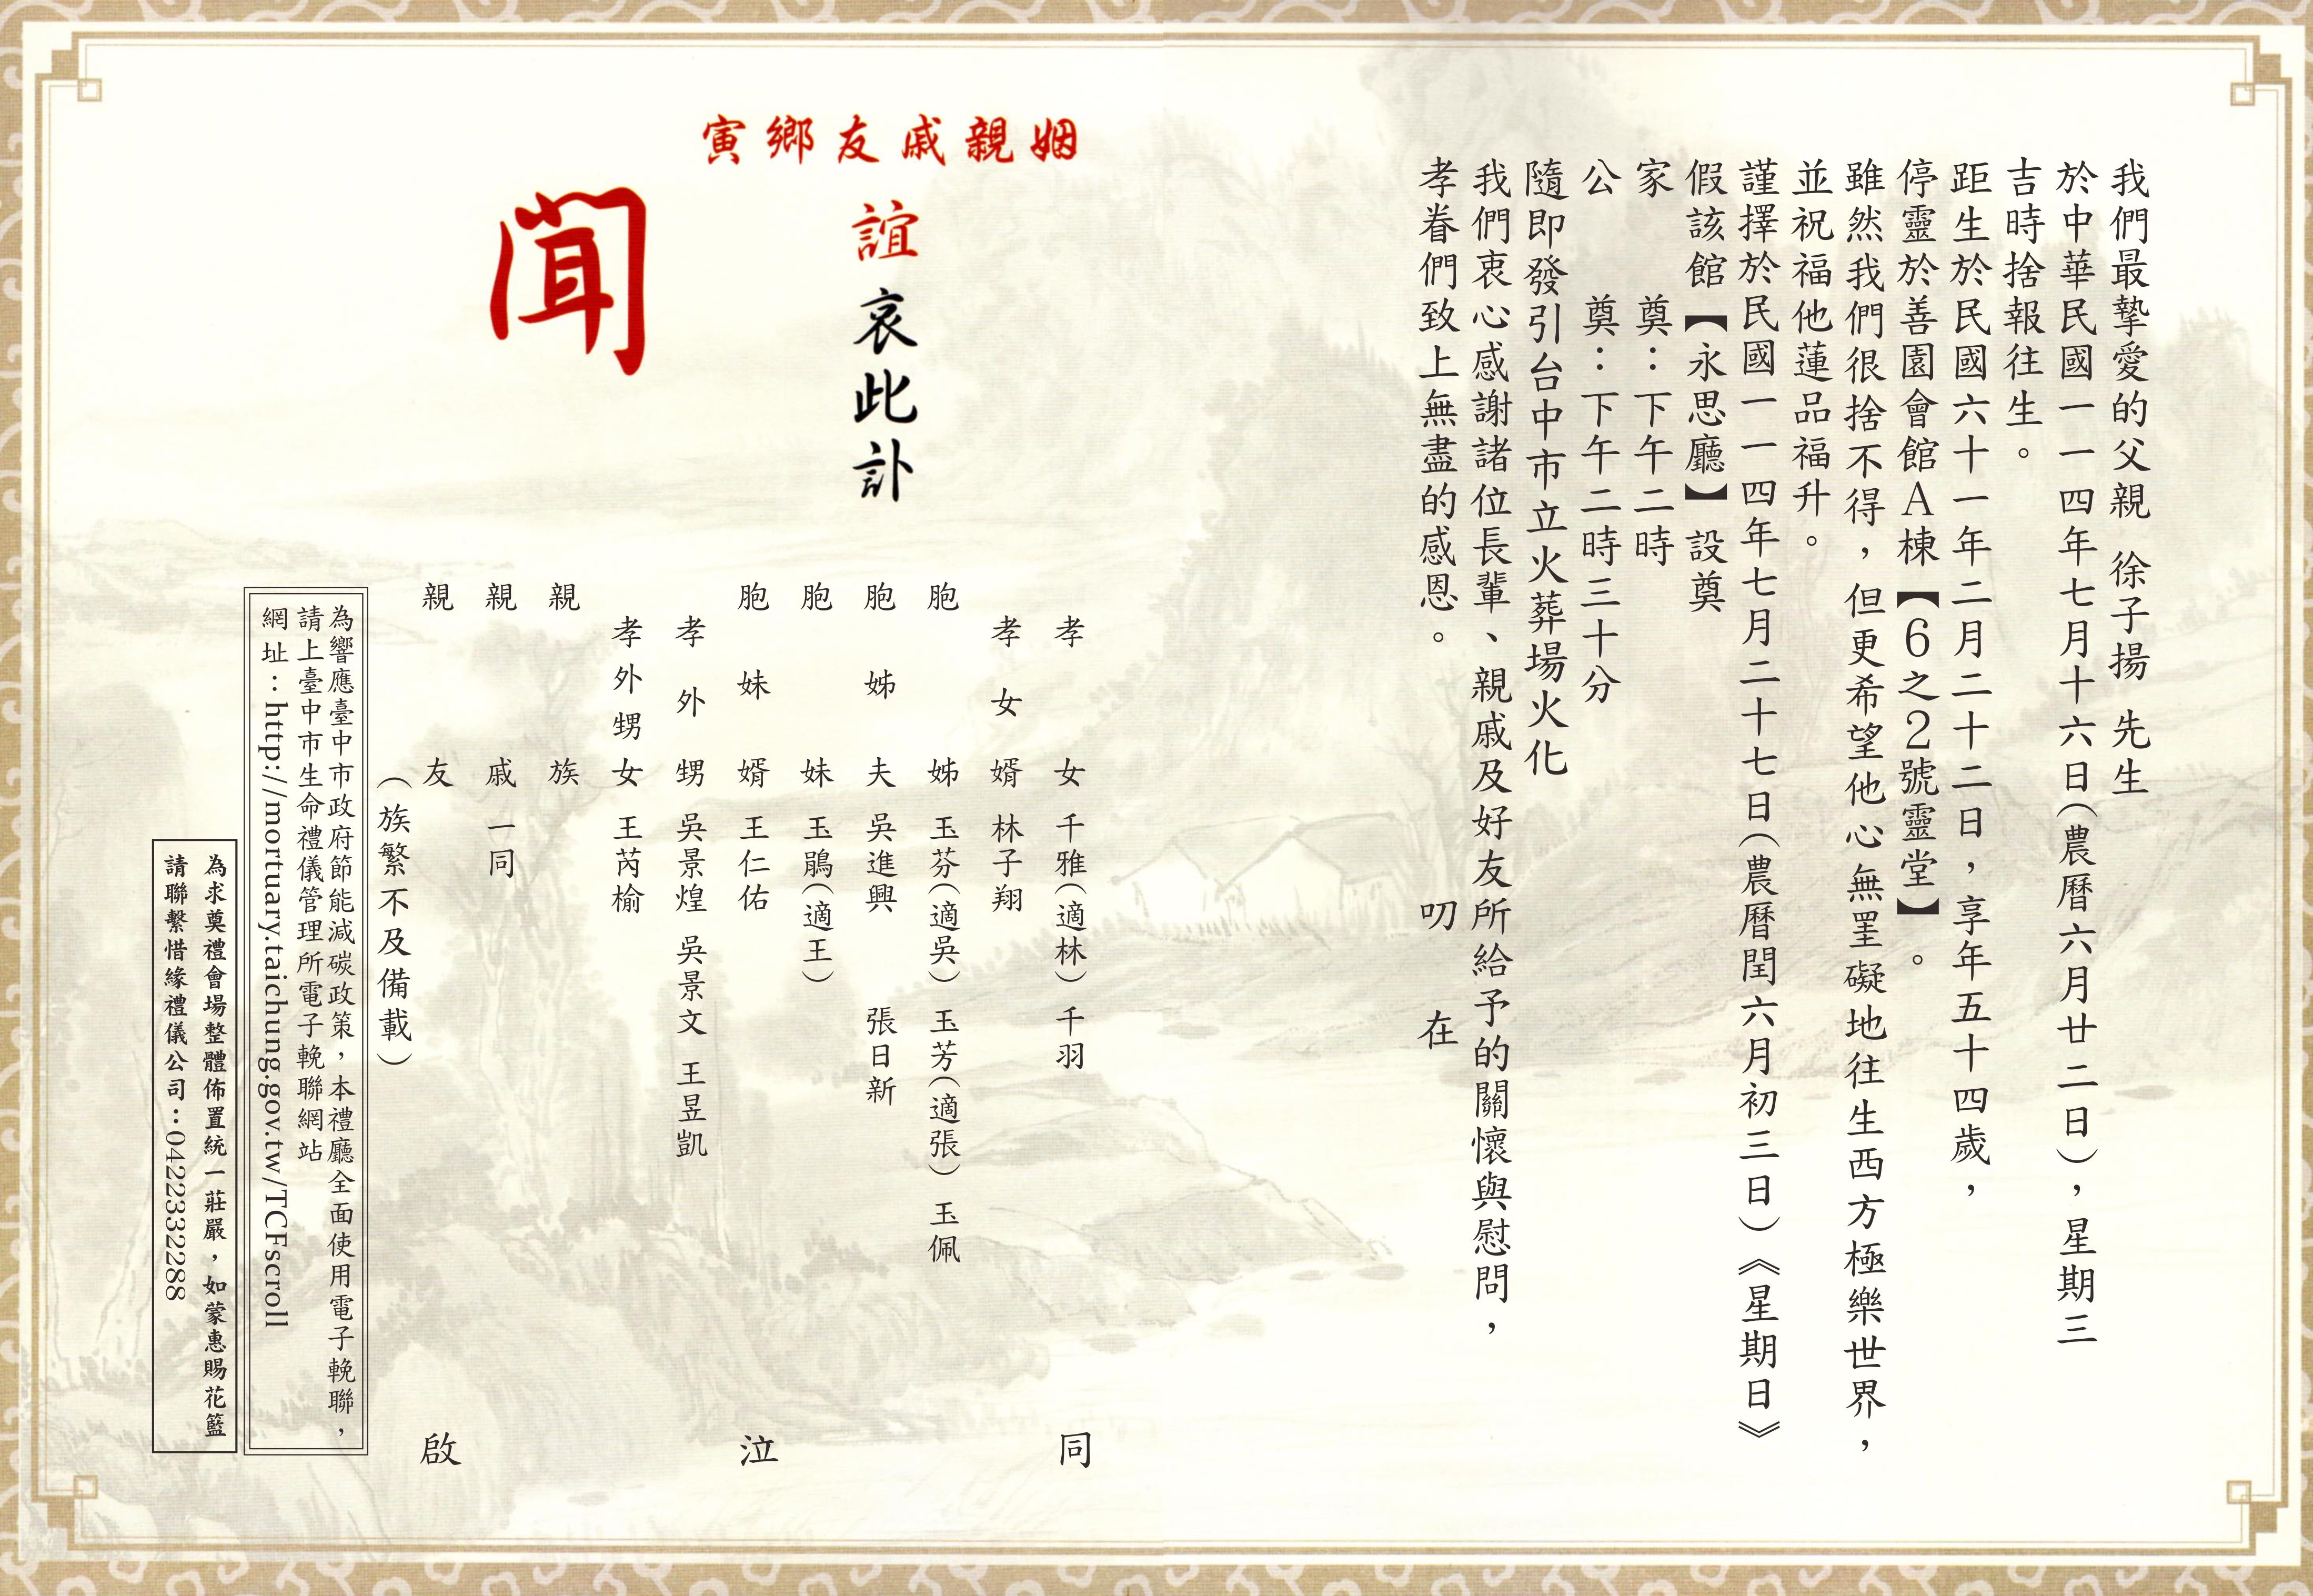 我們最摯愛的父親 徐子揚 先生
於中華民國一一四年七月十六日(農曆六月廿二日)，星期三
吉時捨報往生。
距生於民國六十一年二月二十二日，享年五十四歲，
停靈於善園會館A棟【6之2號靈堂】。
雖然我們很捨不得，但更希望他心無罣礙地往生西方極樂世界，
並祝福他蓮品福升。
謹擇於民國一一四年七月二十七日(農曆閏六月初三日)《星期日》
假該館【永思廳】設奠
家 奠：下午二時
公 奠：下午二時三十分
隨即發引台中市立火葬場火化
我們衷心感謝諸位長輩、親戚及好友所給予的關懷與慰問，
孝眷們致上無盡的感恩。 叨 在
姻親戚友鄉寅
誼哀此訃
聞
孝 女 千雅(適林) 千羽
孝女婿 林子翔
胞 姊 玉芬(適吳) 玉芳(適張) 玉佩
胞姊夫 吳進興 張日新
胞 妹 玉鵑(適王)
胞妹婿 王仁佑
孝外甥 吳景煌 吳景文 王昱凱
孝外甥女 王芮榆
親 族
親 戚 一同
親 友
(族繁不及備載)
同 泣 啟
為響應臺中市政府節能減碳政策，本禮廳全面使用電子輓聯，
請上臺中市生命禮儀管理所電子輓聯網站
網址：http://mortuary.taichung.gov.tw/TCFscroll
為求奠禮會場整體佈置統一莊嚴，如蒙惠賜花籃
請聯繫惜緣禮儀公司：0422332288